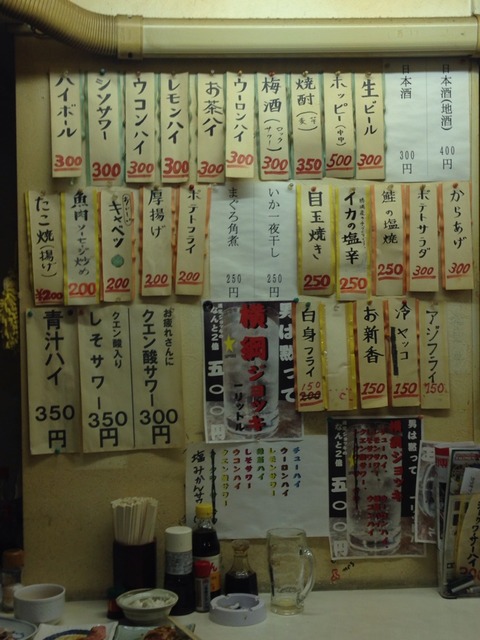 日本酒(地酒) 400円
日本酒 300円
生ビール 300
ホッピー(中中) 500
焼酎(麦) 350
梅酒(ロックサワー) 300
ウーロンハイ 300
お茶ハイ 300
レモンハイ 300
ウコンハイ 300
シソサワー 300
ハイボール 300
からあげ 300
ポテトサラダ 300
鮭の塩焼 250
イカの塩辛 250
目玉焼き 250
いか一夜干し 250円
まぐろ角煮 250円
ポテトフライ 200
厚揚げ 200
キャベツ 200
魚肉ソーセージ炒め 200
たこ焼(揚げ) ¥200
アジフライ 150
冷ヤッコ 150
お新香 150
白身フライ 150 200
男は黙って
横綱ジョッキ
一リットル
なんと2倍
五〇〇円
お疲れさんに
クエン酸サワー
300円
クエン酸入り
しそサワー
350円
青汁ハイ
350円
チューハイ
ウーロンハイ
レモンサワー
緑茶ハイ
しそサワー
ウコンハイ
クエン酸サワー
男は黙って
横綱ジョッキ
なんと2倍
五〇〇円